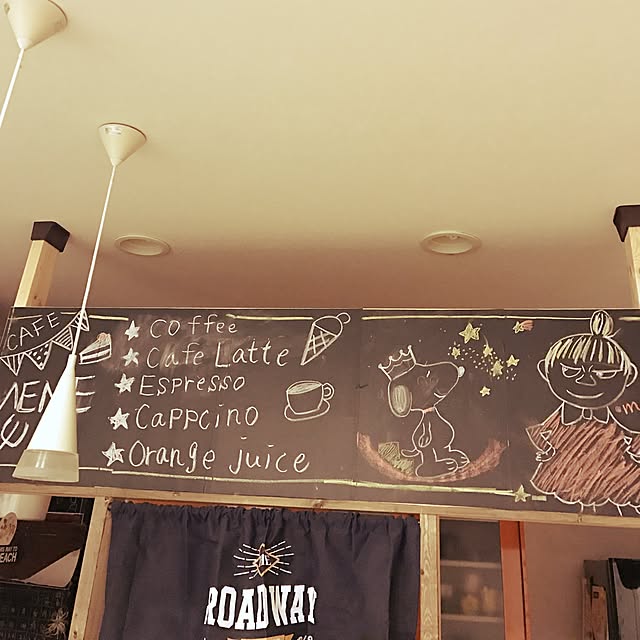 CAFE
MENE
coffee
Cafe Latte
Espresso
Cappcino
Orange juice
ROADWAY